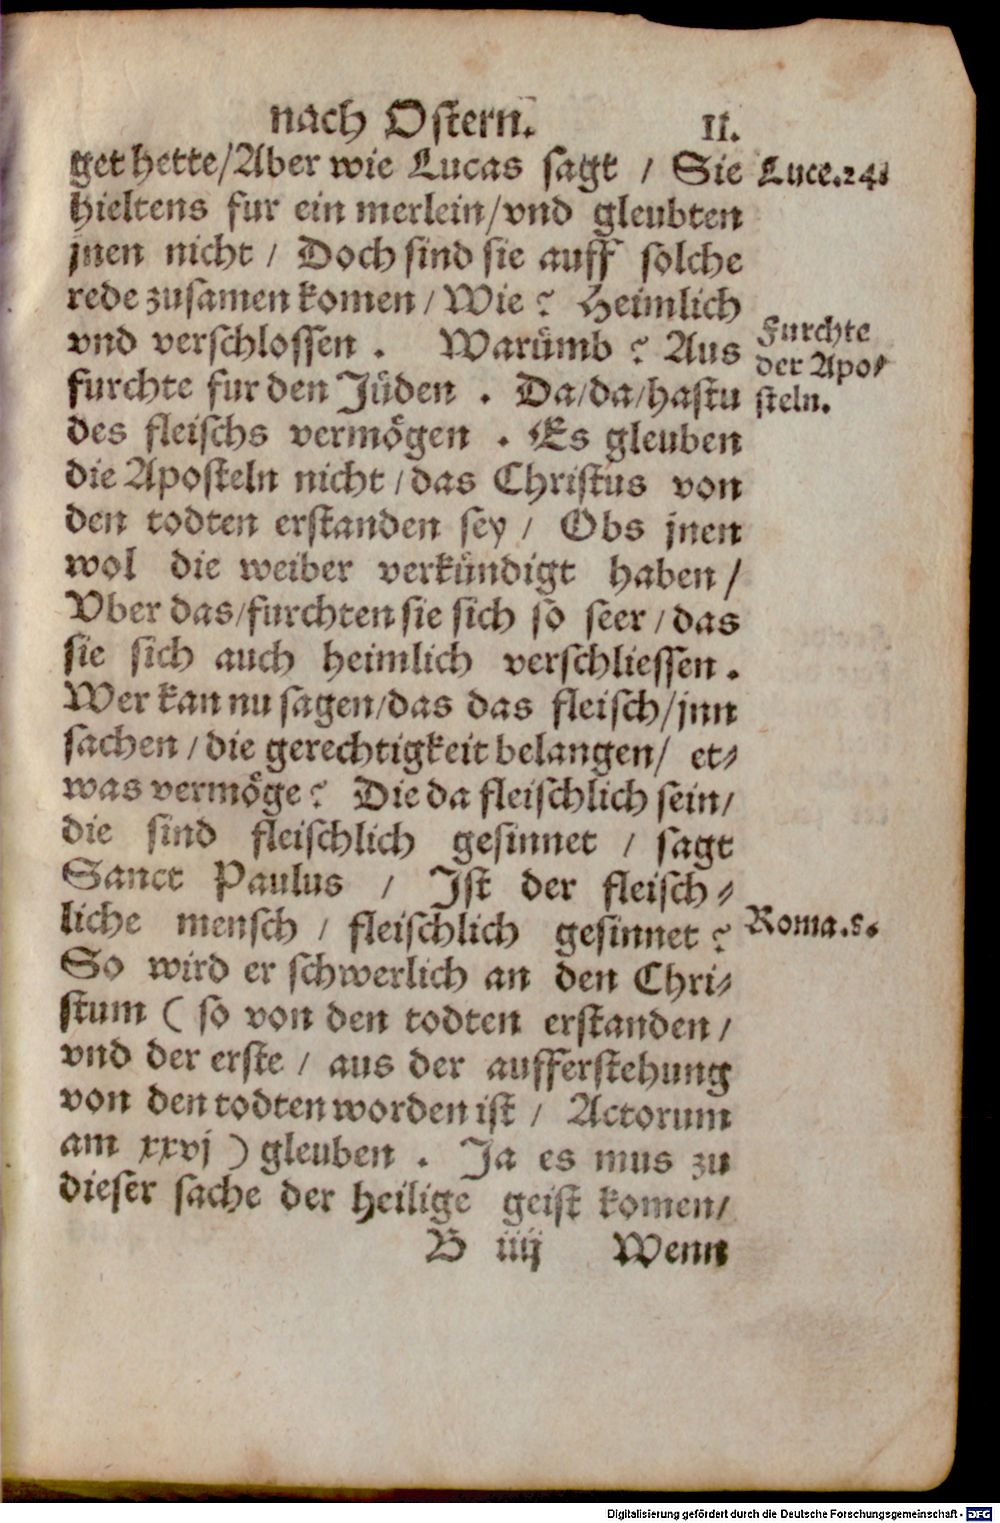 nach Ostern. 11.
get hette/Aber wie Lucas sagt / Sie
Luce.24.
hieltens fur ein merlein/vnd gleubten
jnen nicht / Doch sind sie auff solche
rede zusamen komen / Wie? Heimlich
vnd verschlossen. Warümb? Aus
Furchte
der Apo⸗
steln.
furchte fur den Jüden. Da/da/hastu
des fleischs vermögen. Es gleuben
die Aposteln nicht / das Christus von
den todten erstanden sey / Obs jnen
wol die weiber verkündigt haben /
Vber das/furchten sie sich so seer / das
sie sich auch heimlich verschliessen.
Wer kan nu sagen/das das fleisch/jnn
sachen / die gerechtigkeit belangen / et⸗
was vermöge? Die da fleischlich sein/
die sind fleischlich gesinnet / sagt
Sanct Paulus / Jst der fleisch⸗
liche mensch / fleischlich gesinnet?
Roma.8.
So wird er schwerlich an den Chri⸗
stum ( so von den todten erstanden /
vnd der erste / aus der aufferstehung
von den todten worden ist / Actorum
am xxvj ) gleuben. Ja es mus zu
dieser sache der heilige geist komen/
B iiij Wenn
Digitalisierung gefördert durch die Deutsche Forschungsgemeinschaft - DFG